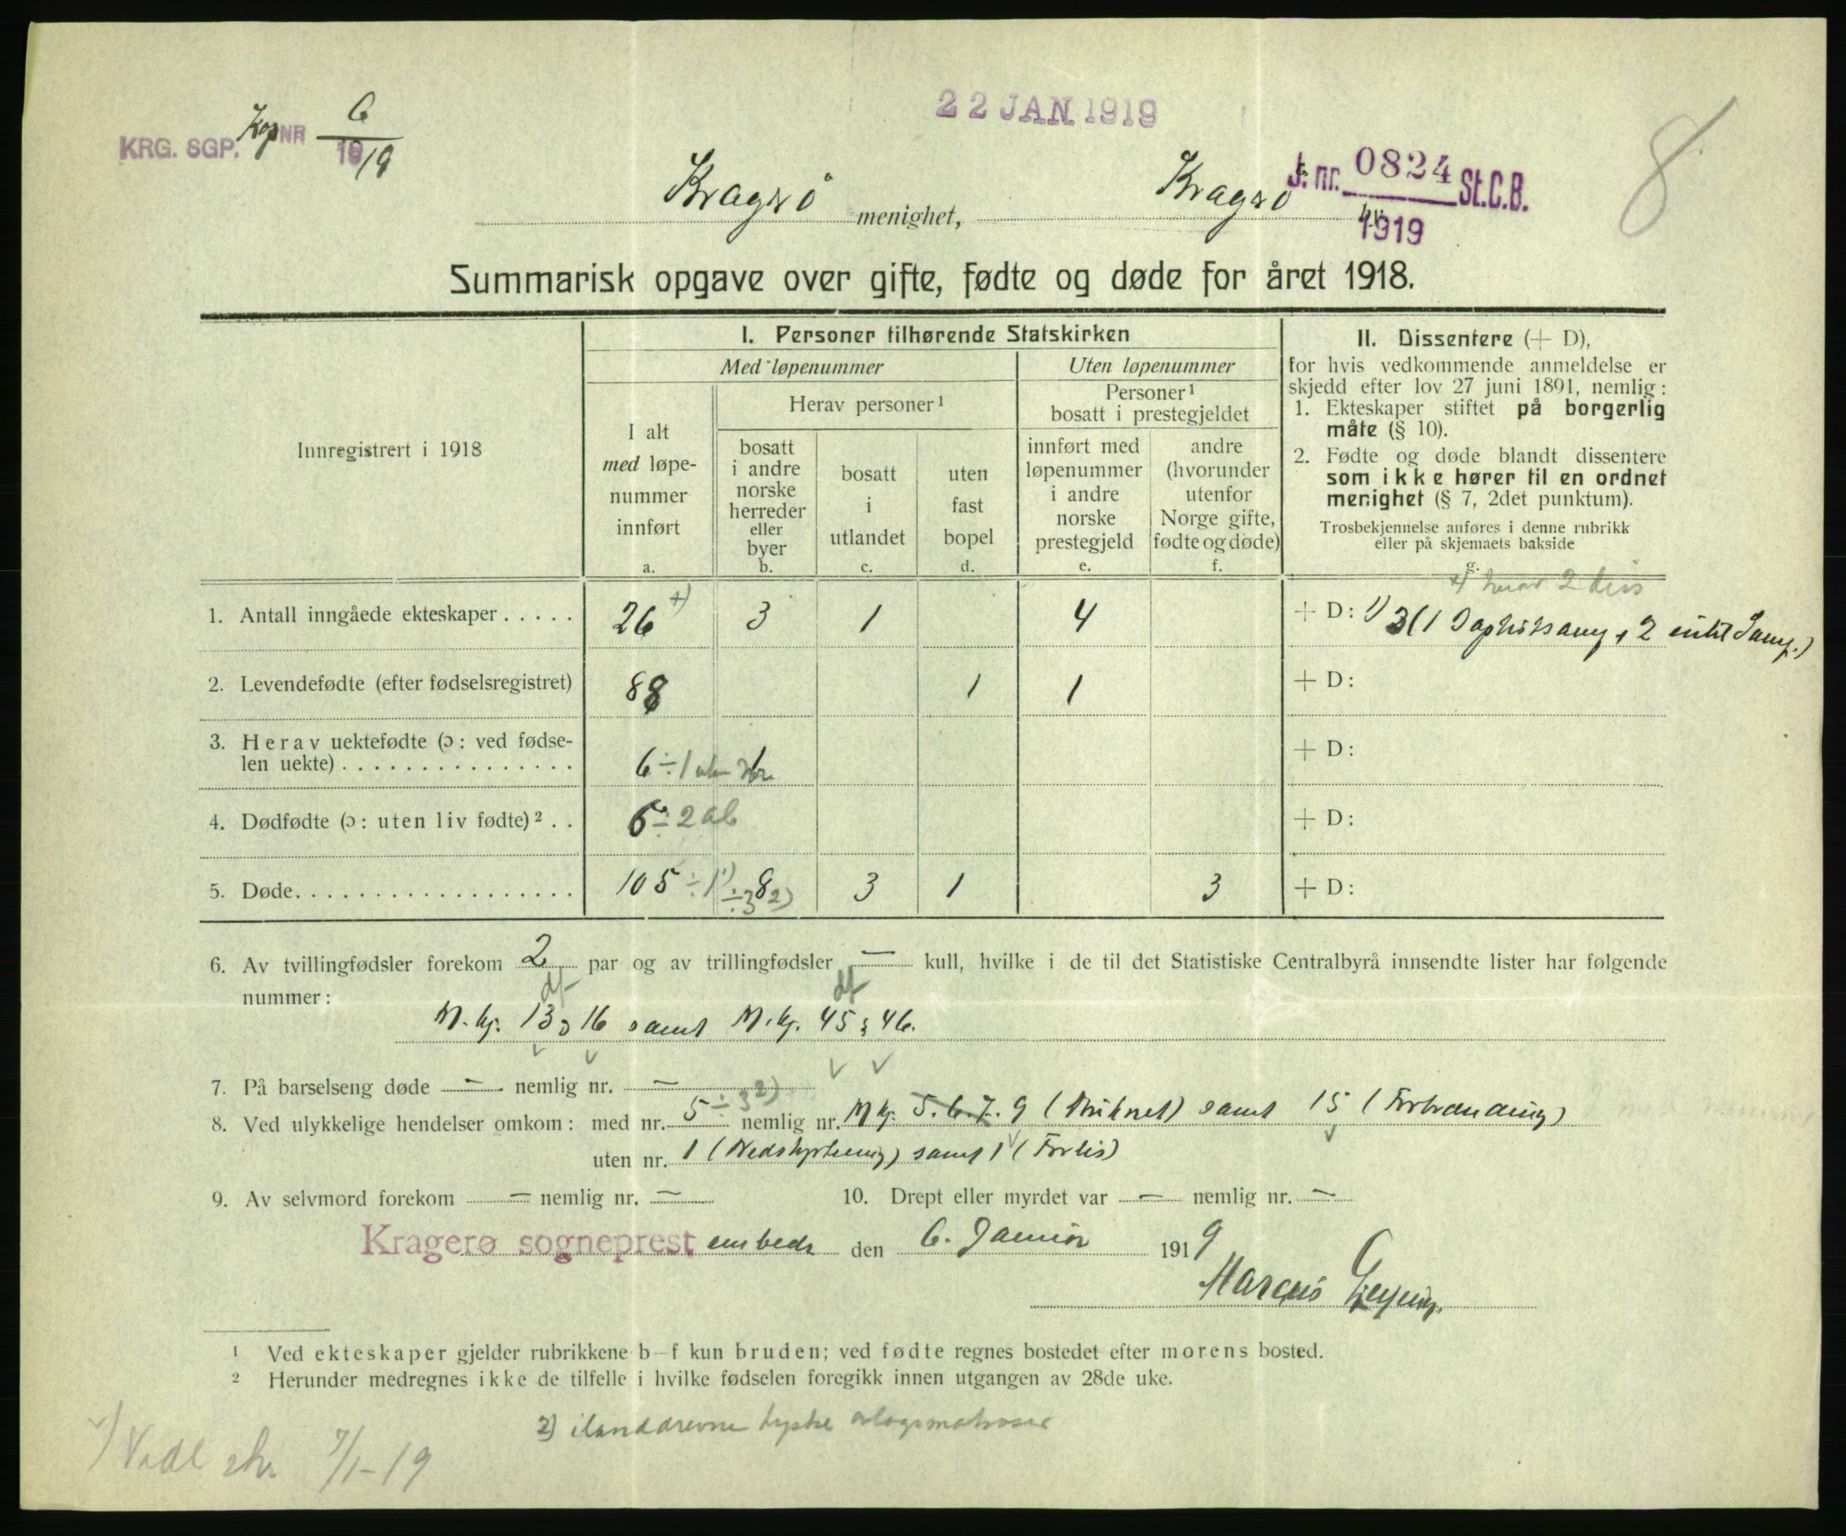 22 JAN. 1919
KRG. SGP. Kop NR 6
1919
8
Kragerø menighet, Kragerø by.
J. nr. 0824 St.C.B.
1919
Summarisk opgave over gifte, fødte og døde for året 1918.
Innregistrert i 1918
I. Personer tilhørende Statskirken
Med løpenummer
Uten løpenummer
I alt
med løpe-
nummer
innført
a.
Herav personer¹
bosatt
i andre
norske
herreder
eller
byer
b.
bosatt
i
utlandet
c.
uten
fast
bopel
d.
Personer¹
bosatt i prestegjeldet
innført med
løpenummer
i andre
norske
prestegjeld
e.
andre
(hvorunder
utenfor
Norge gifte,
fødte og døde)
f.
II. Dissentere (+ D),
for hvis vedkommende anmeldelse er
skjedd efter lov 27 juni 1891, nemlig:
1. Ekteskaper stiftet på borgerlig
måte (§ 10).
2. Fødte og døde blandt dissentere
som ikke hører til en ordnet
menighet (§ 7, 2det punktum).
Trosbekjennelse anføres i denne rubrikk
eller på skjemaets bakside
g.
+) herav 2 diss
1. Antall inngåede ekteskaper . . . . . 26 +) 3 1 4 + D: 1) 3 (1 Baptistsamf, 2 enkel Samf.)
2. Levendefødte (efter fødselsregistret) 88 1 1 + D:
3. Herav uektefødte (ɔ: ved fødse-
len uekte) . . . . . . . . . . . . . . . 6 ÷ 1 uten nr. + D:
4. Dødfødte (ɔ: uten liv fødte)² . . 6 ÷ 2 ab + D:
5. Døde. . . . . . . . . . . . . . . . . . 105 ÷ 1 1) 8 ÷ 3 2) 3 1 3 + D:
6. Av tvillingfødsler forekom 2 par og av trillingfødsler — kull, hvilke i de til det Statistiske Centralbyrå innsendte lister har følgende
nummer:
df df
M. kj. 13 & 16 samt M. kj. 45 & 46.
7. På barselseng døde — nemlig nr. —
8. Ved ulykkelige hendelser omkom: med nr. 5 ÷ 3 2) nemlig nr. M kj. 5. 6. 7. 9 (Druknet) samt 15 (Forbrænding)
uten nr. 1 (Nedstyrtning) samt 1 (Forlis)
9. Av selvmord forekom — nemlig nr. — 10. Drept eller myrdet var — nemlig nr. —
Kragerø sogneprestembede den 6. Januar 1919
Marcus
¹ Ved ekteskaper gjelder rubrikkene b—f kun bruden; ved fødte regnes bostedet efter morens bosted.
² Herunder medregnes ikke de tilfelle i hvilke fødselen foregikk innen utgangen av 28de uke.
2) ilanddrevne tyske orlogsmatroser
1) Vedl skr. 7/1-19